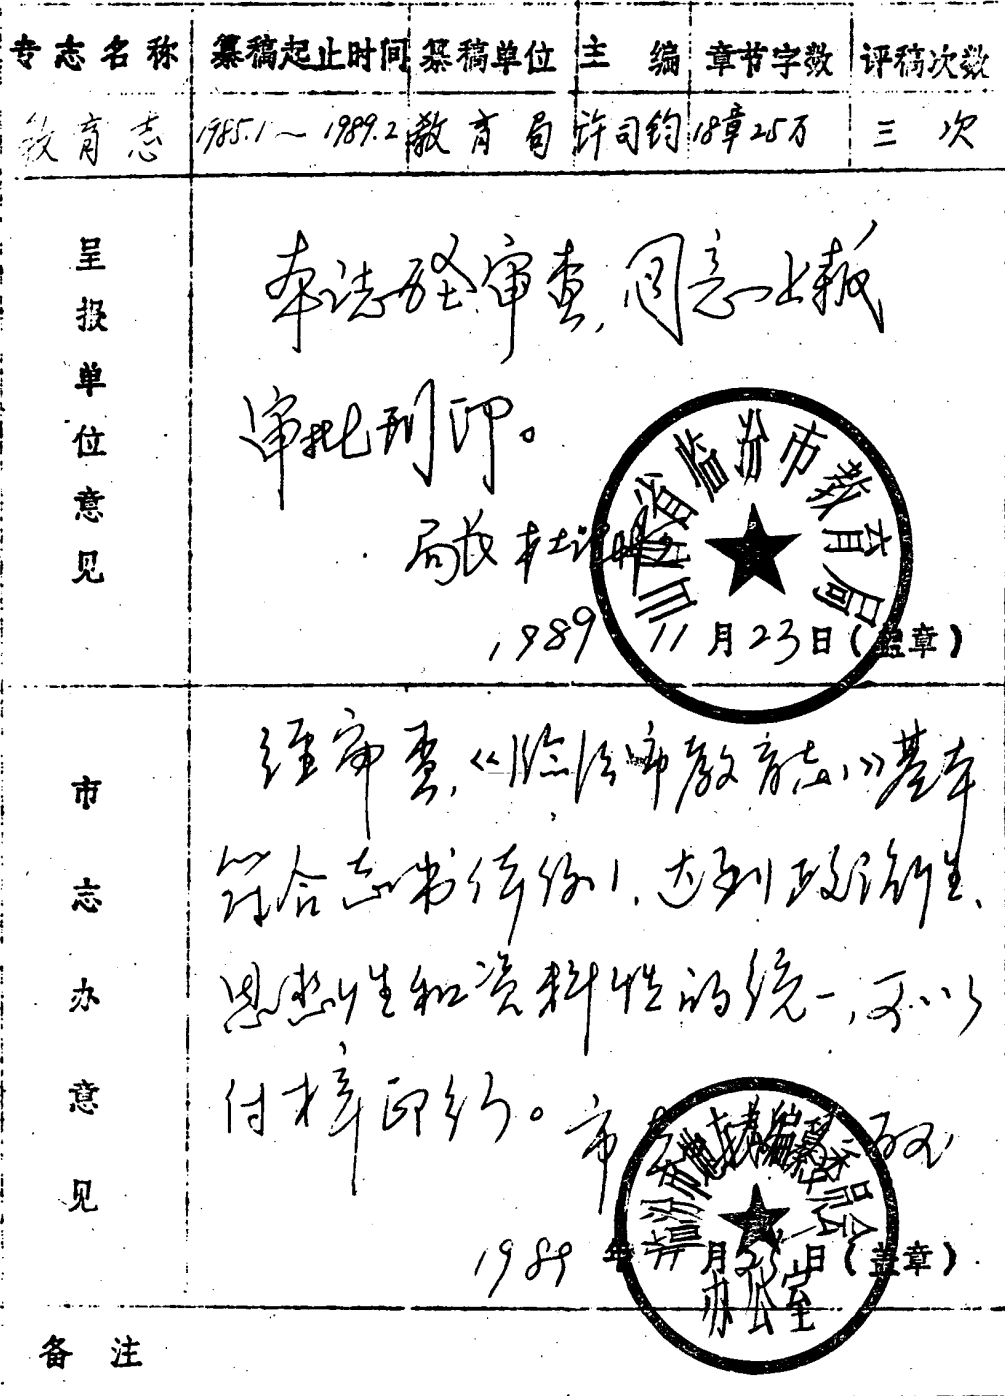 专志名称 纂稿起止时间 纂稿单位 主编 章节字数 评稿次数
教育志 1985.1～1989.2 教育局 许司钧 18章25万 三次
呈报单位意见
本志历经审查,同意上报
审批刊印。
局长 杜
1989 11月23日(盖章)
山西省临汾市教育局
市志办意见
经审查,《临汾市教育志》基本
符合志书体例,达到政治性、
思想性和资料性的统一,可以
付梓印行。市
1989年 月25日(盖章)
临汾市地方志编纂委员会
办公室
备注